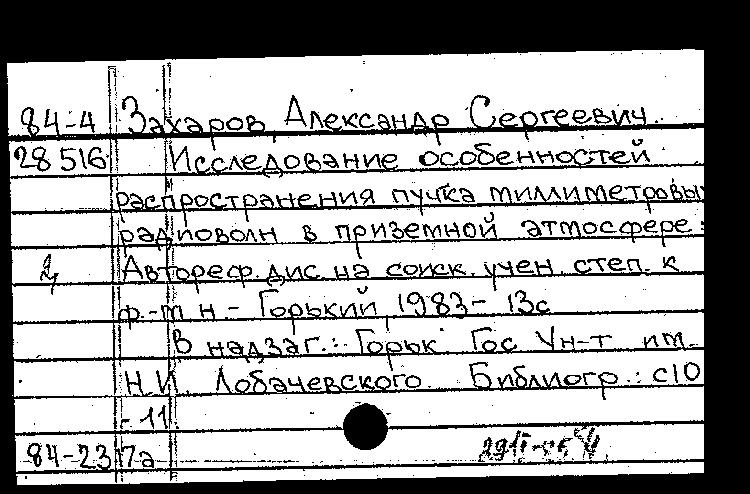 84-4 Захаров, Александр Сергеевич
28516 Исследование особенностей
распространения пучка миллиметровых
радиоволн в приземной атмосфере:
Автореф. дис. на соиск. учен. степ. к
ф.-м н. - Горький, 1983 - 13с
В надзаг.: Горьк Гос Ун-т им.
Н.И. Лобачевского. Библиогр.: с10
-11
84-23 17а